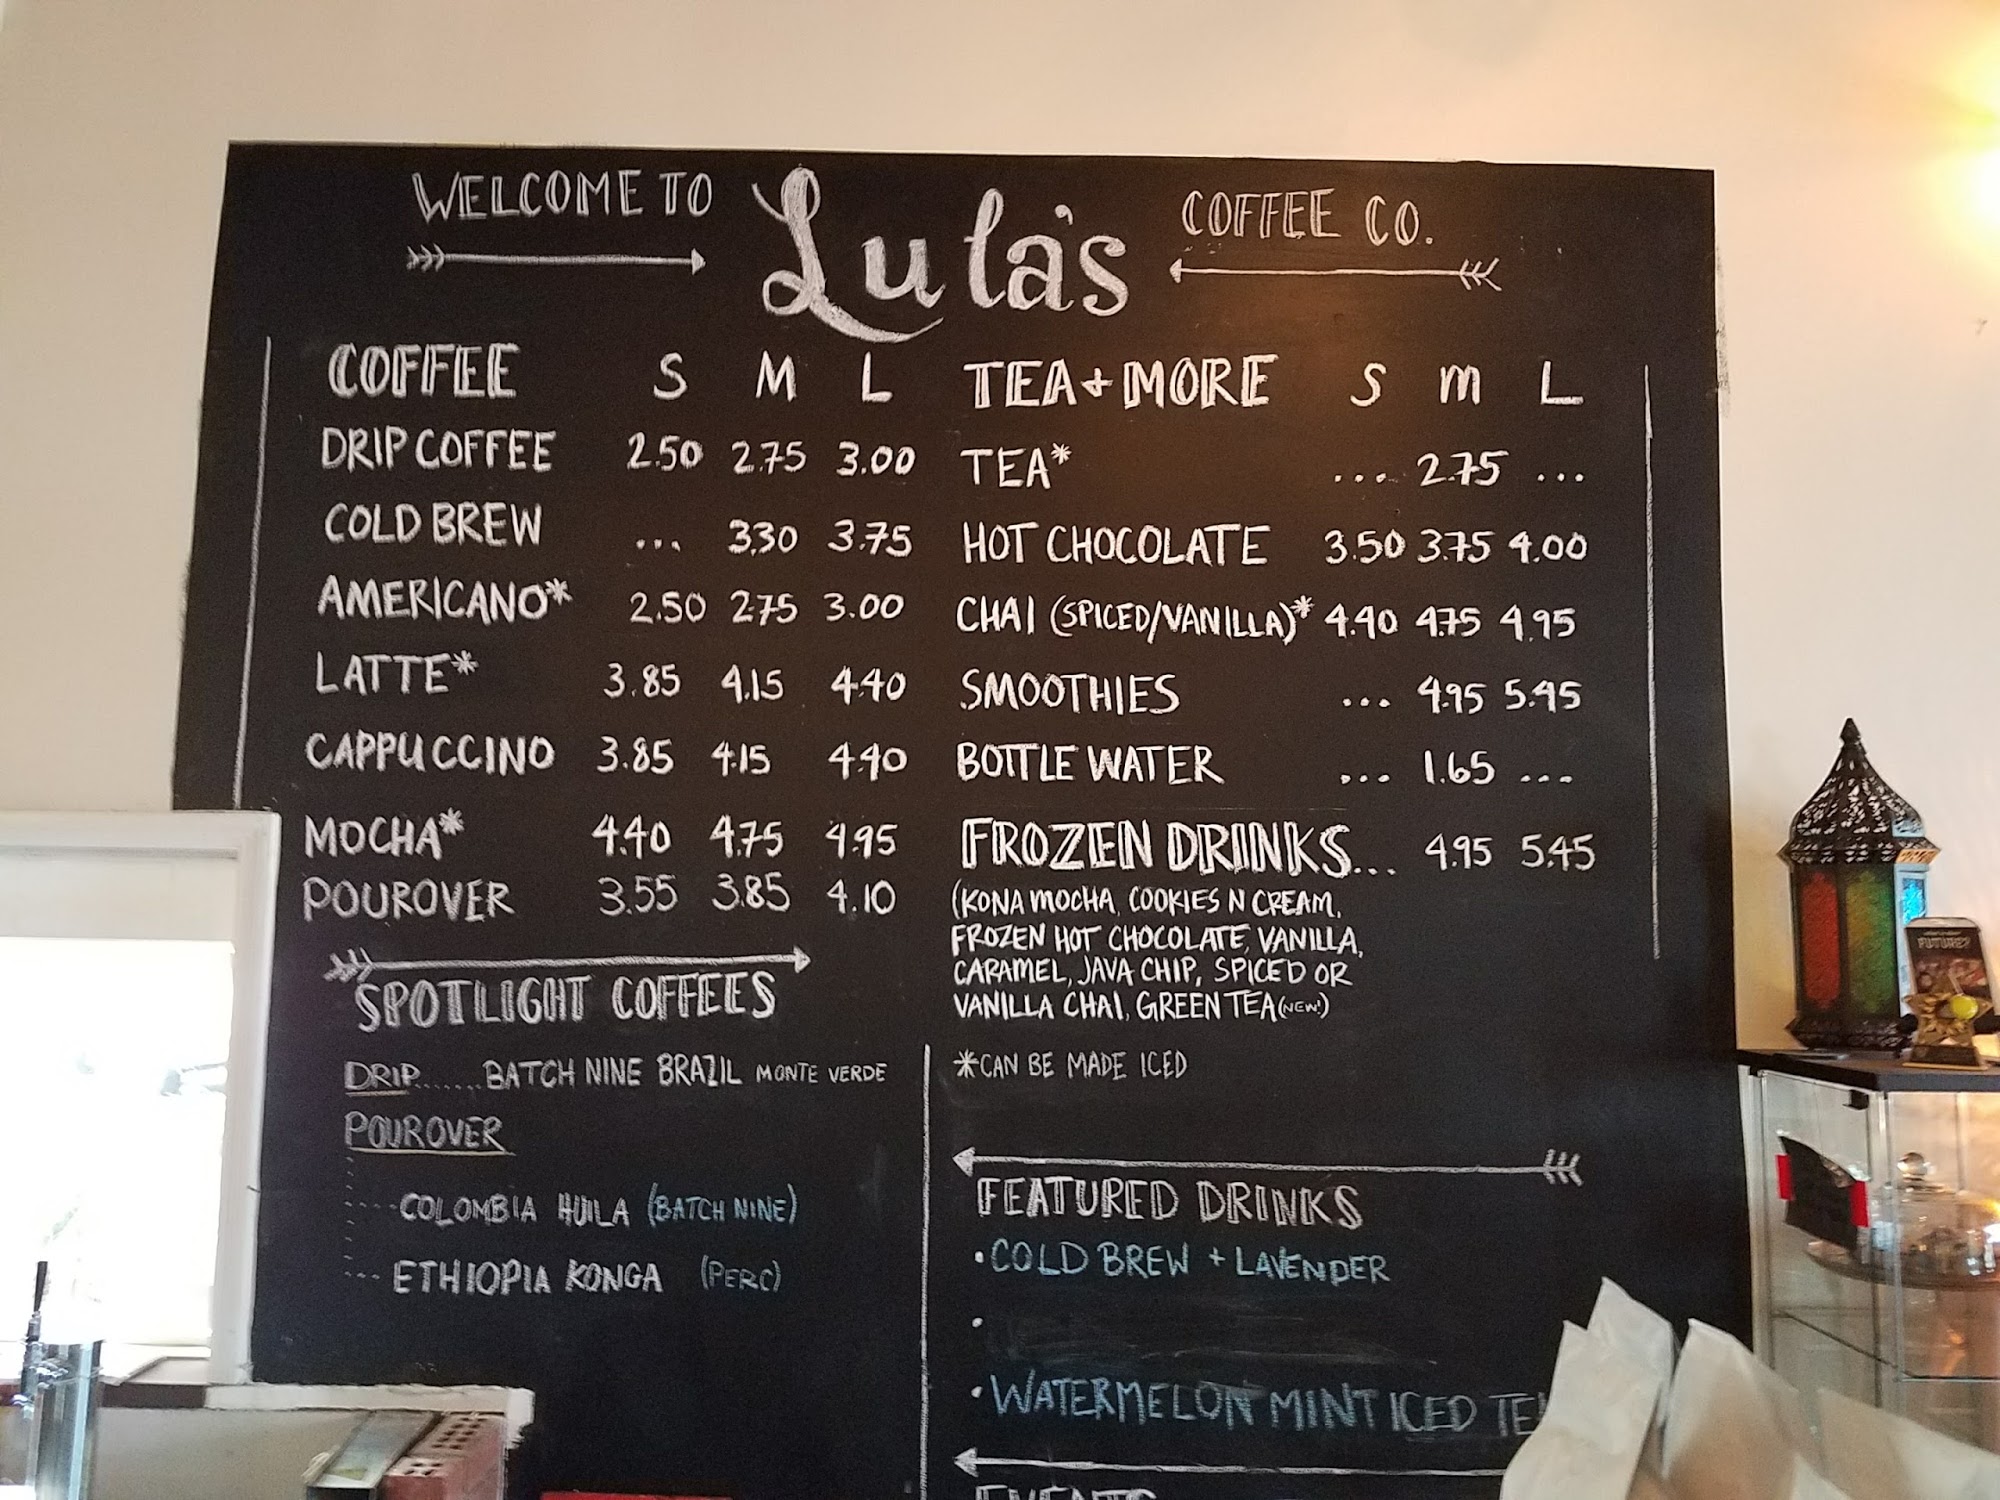 WELCOME TO Lula's COFFEE CO.
COFFEE S M L
DRIP COFFEE 2.50 2.75 3.00
COLD BREW ... 3.30 3.75
AMERICANO* 2.50 2.75 3.00
LATTE* 3.85 4.15 4.40
CAPPUCCINO 3.85 4.15 4.40
MOCHA* 4.40 4.75 4.95
POUROVER 3.55 3.85 4.10
SPOTLIGHT COFFEES
DRIP....... BATCH NINE BRAZIL MONTE VERDE
POUROVER
....COLOMBIA HUILA (BATCH NINE)
... ETHIOPIA KONGA (PERC)
TEA + MORE S M L
TEA* ... 2.75 ...
HOT CHOCOLATE 3.50 3.75 4.00
CHAI (SPICED/VANILLA)* 4.40 4.75 4.95
SMOOTHIES ... 4.95 5.45
BOTTLE WATER ... 1.65 ...
FROZEN DRINKS... 4.95 5.45
(KONA MOCHA, COOKIES N CREAM,
FROZEN HOT CHOCOLATE, VANILLA,
CARAMEL, JAVA CHIP, SPICED OR
VANILLA CHAI, GREEN TEA (NEW!)
*CAN BE MADE ICED
FEATURED DRINKS
• COLD BREW + LAVENDER
•
• WATERMELON MINT ICED TE
EVENTS
FUTURE?